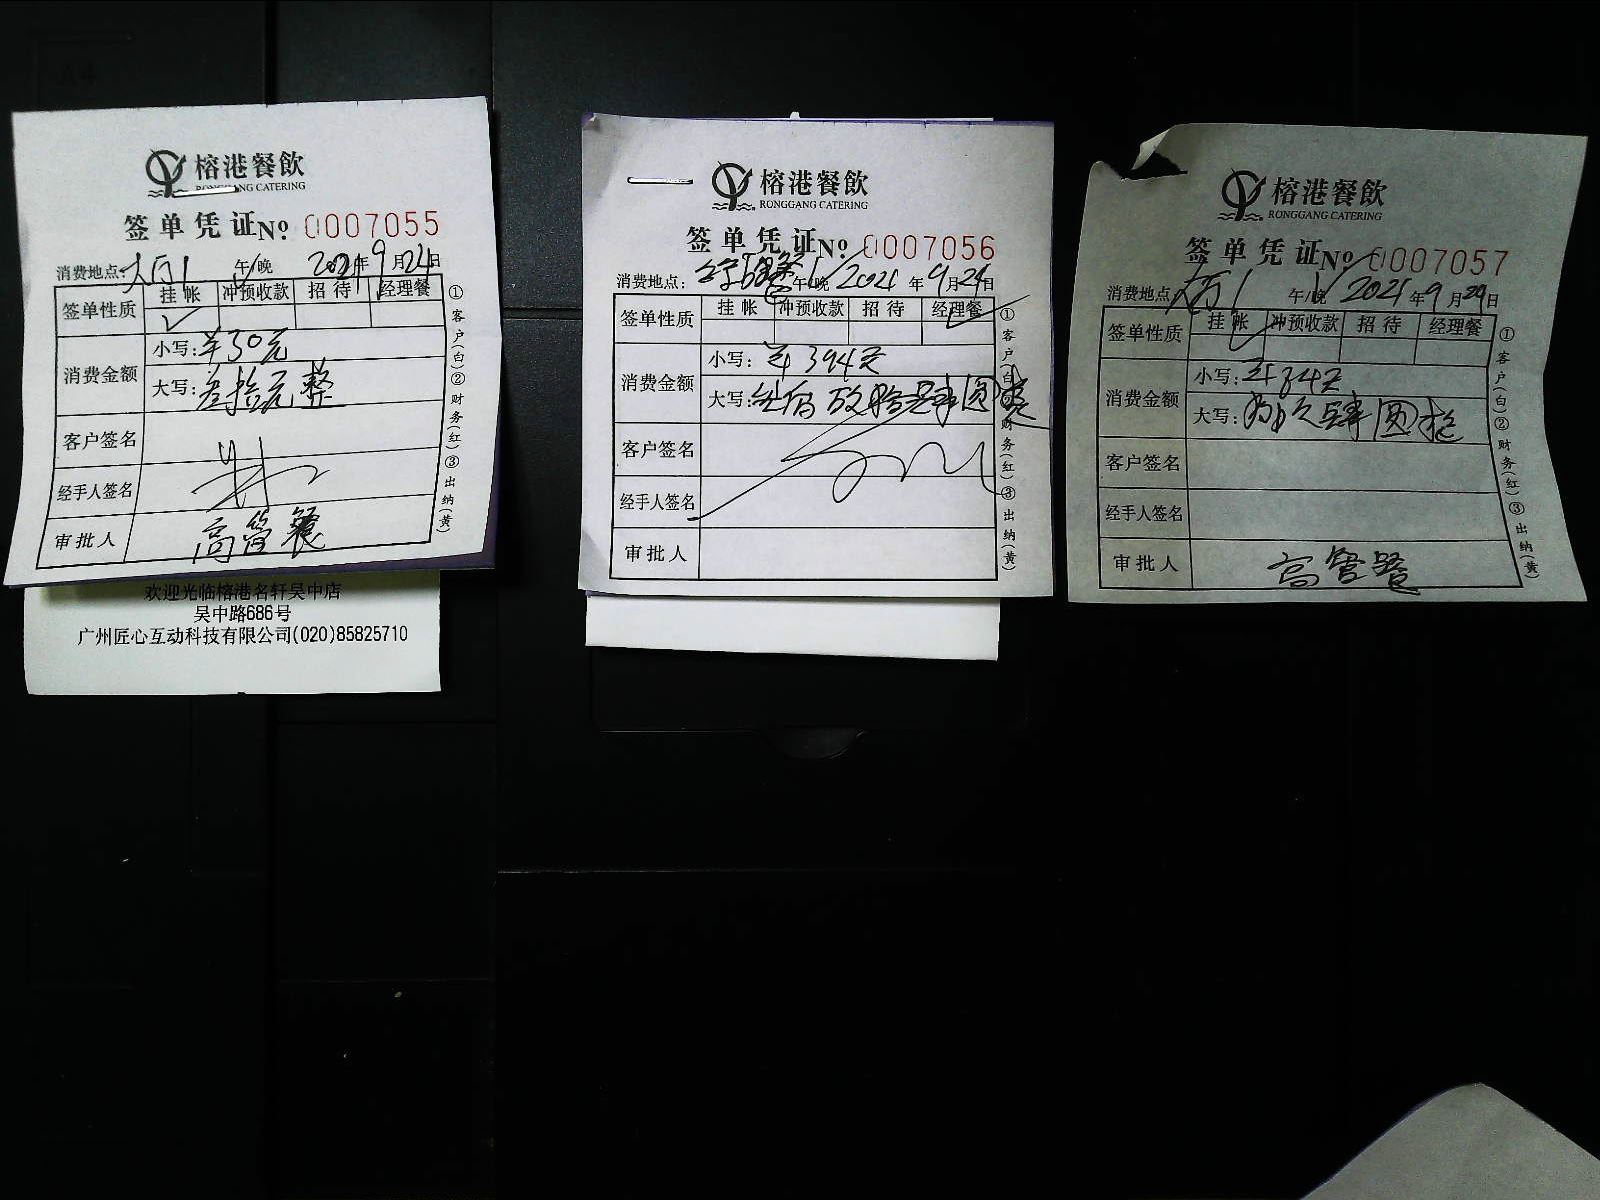 榕港餐飲
RONGGANG CATERING
签单凭证 No 0007055
消费地点: 大厅1 午/晚 2021年9月24日
签单性质 挂帐 冲预收款 招待 经理餐
消费金额 小写: ￥30元
大写: 叁拾元整
客户签名
经手人签名
审批人 高管餐
①客户(白)②财务(红)③出纳(黄)
欢迎光临榕港名轩吴中店
吴中路686号
广州匠心互动科技有限公司(020)85825710
榕港餐飲
RONGGANG CATERING
签单凭证 No 0007056
消费地点: 午/晚 2021年9月24日
签单性质 挂帐 冲预收款 招待 经理餐
消费金额 小写: ￥394元
大写: 叁佰玖拾肆圆整
客户签名
经手人签名
审批人
①客户(白)②财务(红)③出纳(黄)
榕港餐飲
RONGGANG CATERING
签单凭证 No 0007057
消费地点: 大厅1 午/晚 2021年9月24日
签单性质 挂帐 冲预收款 招待 经理餐
消费金额 小写: ￥34元
大写: 肆圆
客户签名
经手人签名
审批人 高管餐
①客户(白)②财务(红)③出纳(黄)